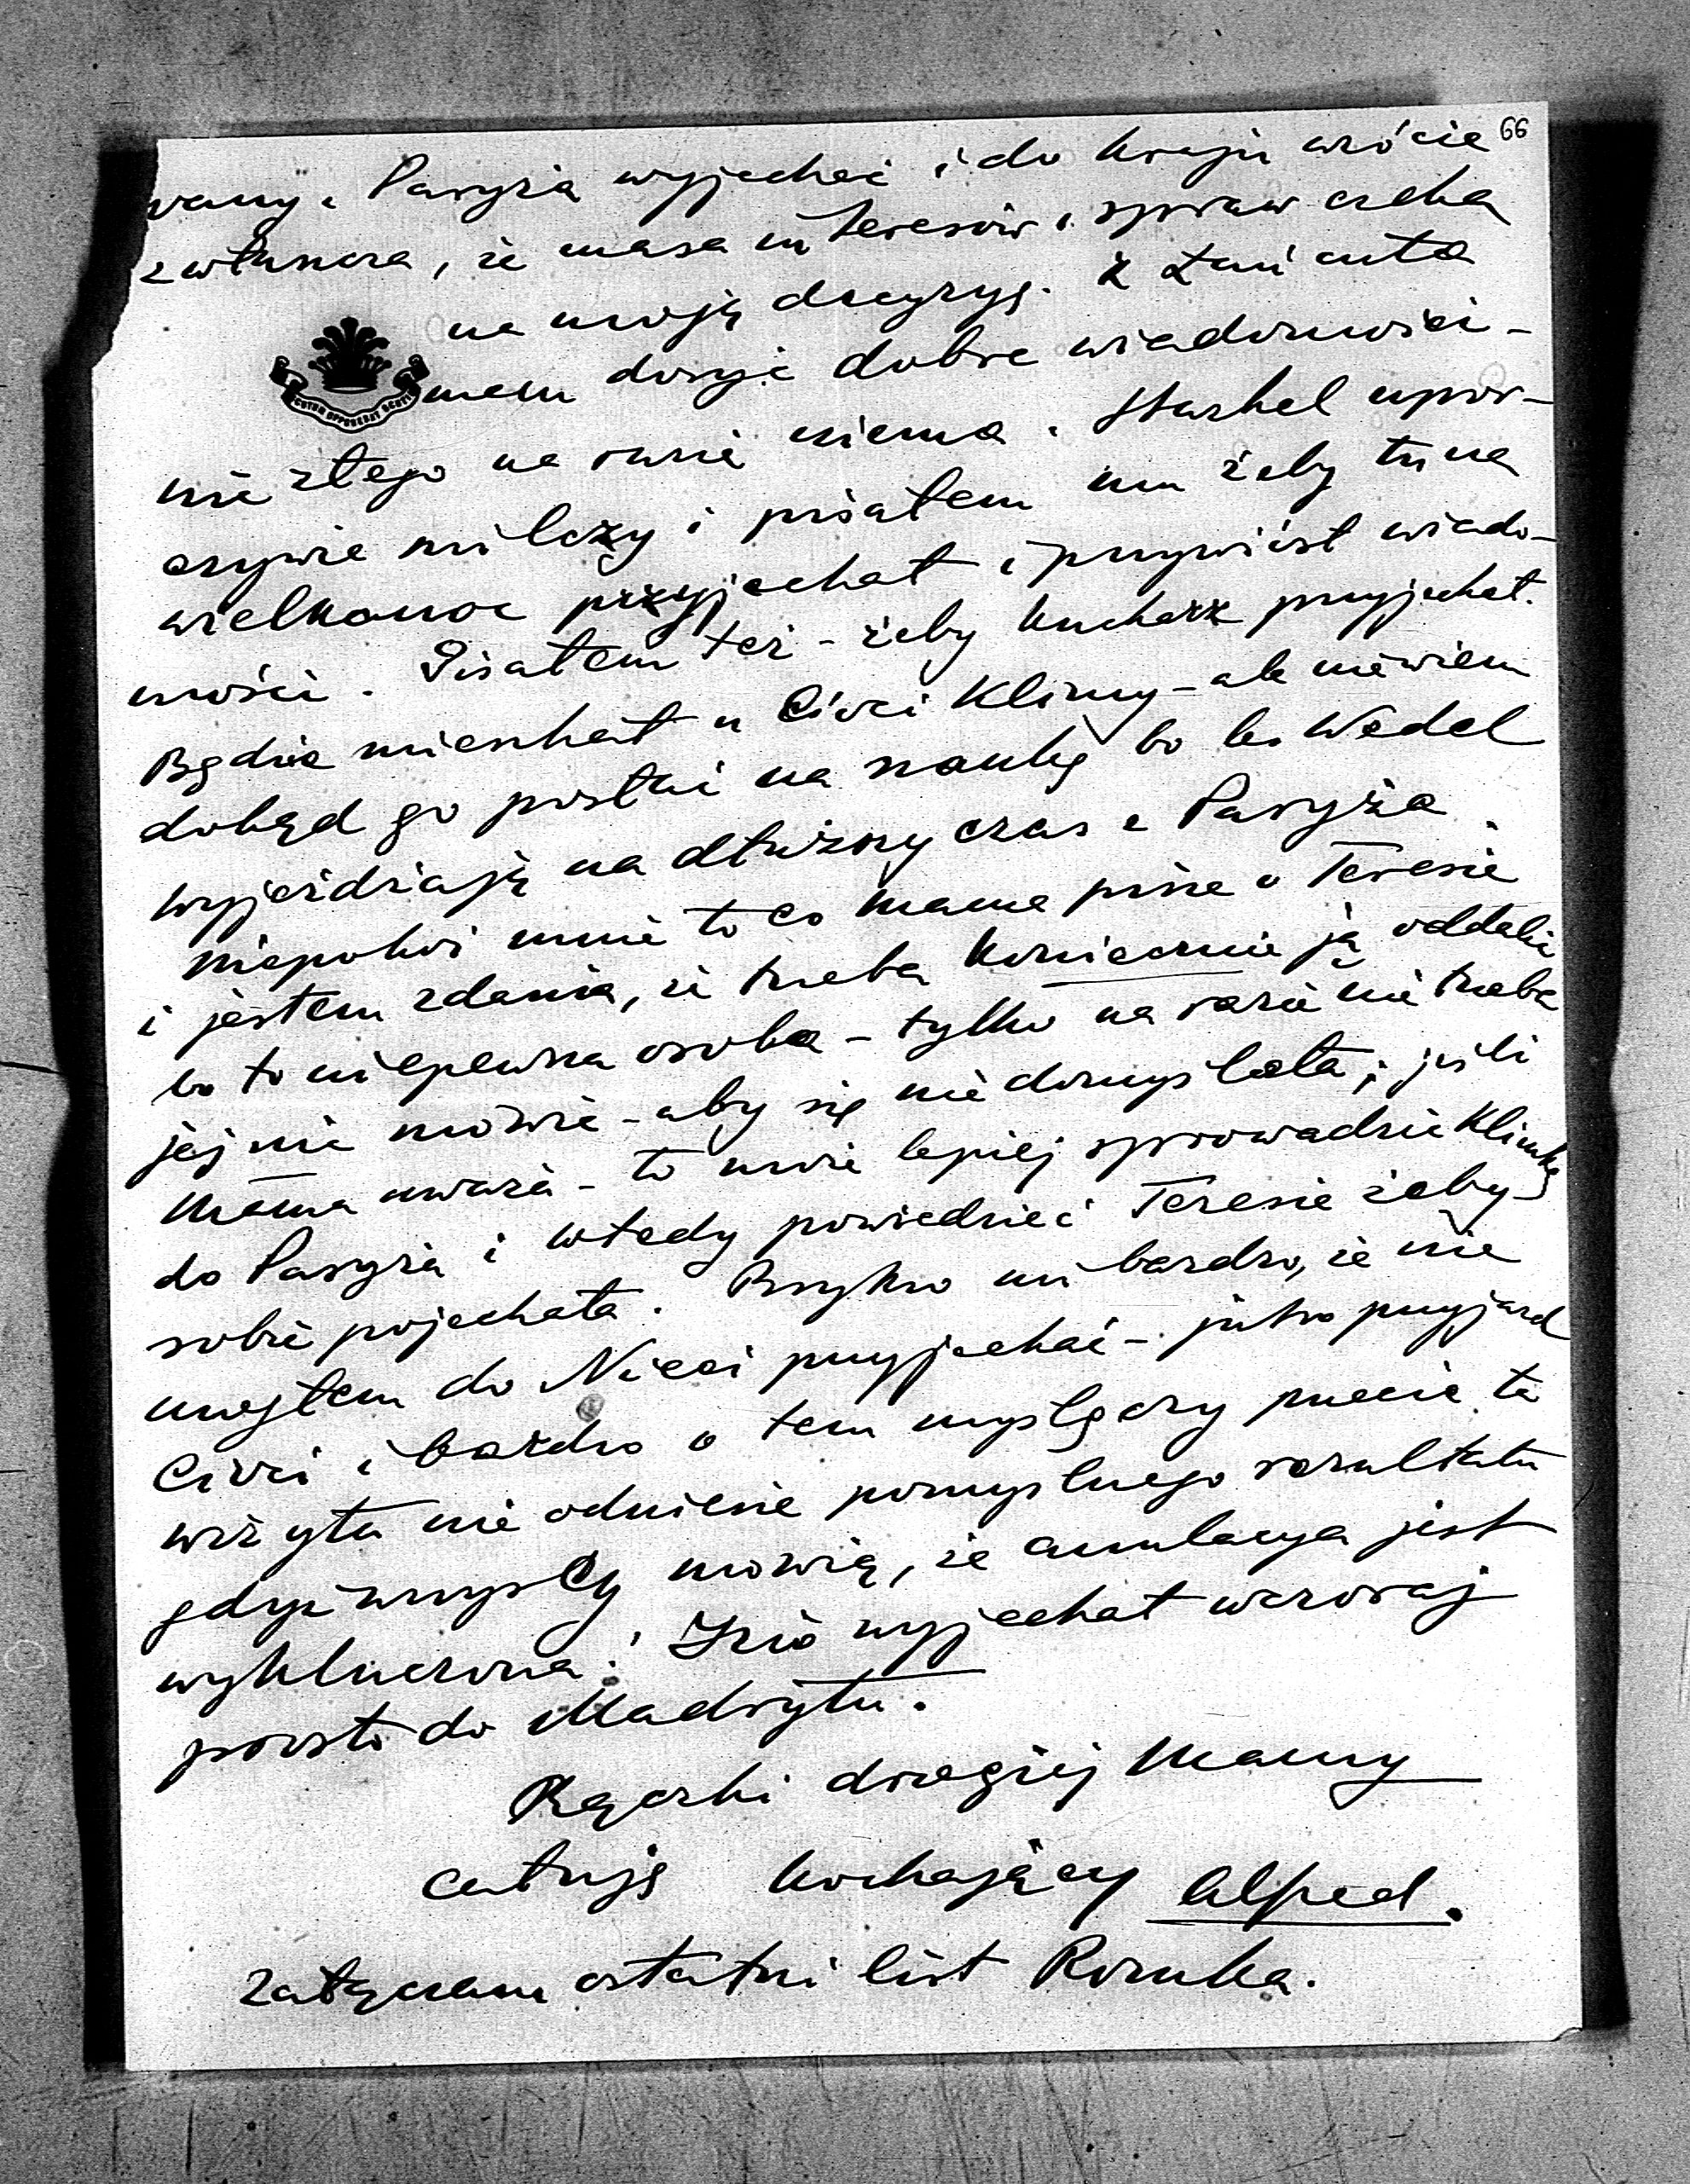 66
wany z Paryża wyjechać i do kraju wrócić
zwłaszcza, że masa interesów i spraw czeka
na moją decyzyę. Z Łańcuta
mam dosyć dobre wiadomości –
nic złego na razie niema. Starkel upor-
czywie milczy i pisałem mu żeby tu na
wielkanoc przyjechał i przywiózł wiado-
mości. Pisałem też – żeby kucharz przyjechał.
Będzie mieszkał u Cioci Klimy – ale nie wiem
dokąd go posłać na naukę bo les Wedel
wyjeżdżają na dłuższy czas z Paryża.
Niepokoi mnie to co Mama pisze o Teresie
i jestem zdania, że trzeba koniecznie ją oddalić
bo to niepewna osoba – tylko na razie nie trzeba
jej nic mówić – aby się nie domyślała; jeśli
Mama uważa – to może lepiej sprowadzić Klimkę
do Paryża i wtedy powiedzieć Teresie żeby
sobie pojechała. Przykro mi bardzo, że nie
mogłem do Nicei przyjechać – jutro przyjazd
Cioci i bardzo o tem myślę czy przecie ta
wizyta nie odniesie pomyślnego rezultatu
gdyż wszyscy mówią, że anulacya jest
wykluczona. Izio wyjechał wczoraj
prosto do Madrytu.
Rączki drogiej Mamy
całuję kochający Alfred.
Załączam ostatni list Romka.